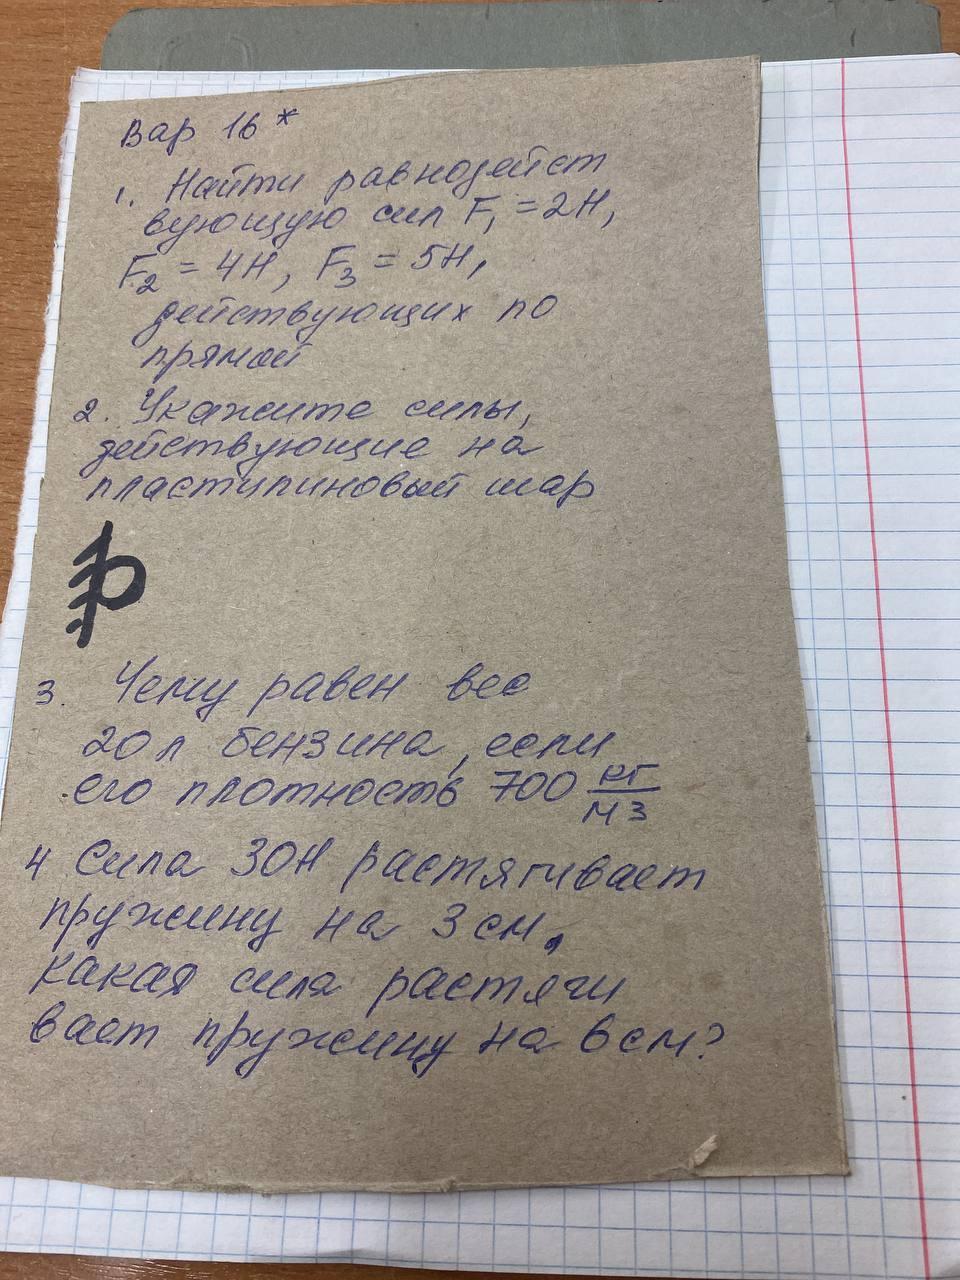 Вар 16*
1. Найти равнодейст
вующую сил F₁ = 2Н,
F₂ = 4Н, F₃ = 5Н,
действующих по
прямой
2. Укажите силы,
действующие на
пластилиновый шар
3. Чему равен вес
20 л бензина, если
его плотность 700 кг/м3
4 Сила 30Н растягивает
пружину на 3 см,
какая сила растяги
вает пружину на 6 см?